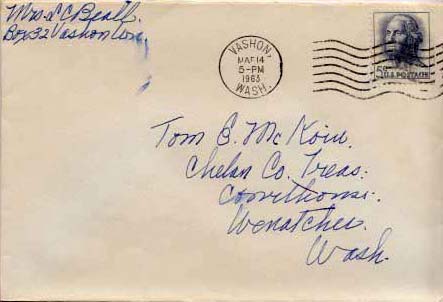 Mrs L C Beall.
Box 32 Vashon Wn.
VASHON,
MAR 14
5-PM
1963
WASH.
5¢ U.S. POSTAGE
Tom E. McKoin.
Chelan Co. Treas.
Courthouse.
Wenatchee.
Wash.